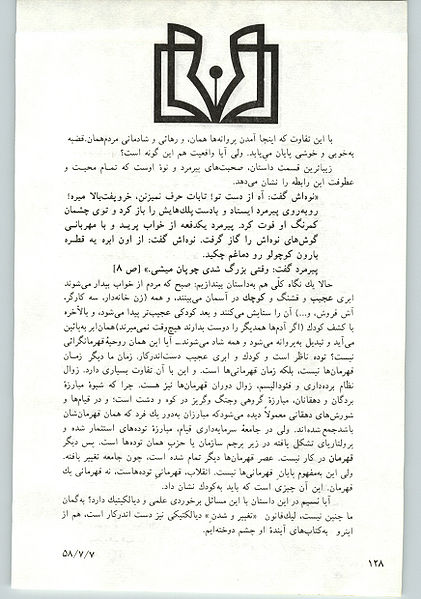 با این تفاوت که اینجا آمدن پروانه‌ها همان، و رهائی و شادمانی مردم‌همان. قضیه
به‌خوبی و خوشی پایان می‌یابد. ولی آیا واقعیت هم این گونه است؟
زیباترین قسمت داستان، صحبت‌های پیرمرد و نوهٔ اوست که تمام محبت و
عطوفت این رابطه را نشان می‌دهد.
«نوه‌اش گفت: آه از دست تو! تابات حرف نمیزنن، خروپفت‌بالا میره!
روبه‌روی پیرمرد ایستاد و بادست پلك‌هایش را باز کرد و توی چشمان
کمرنگ او فوت کرد. پیرمرد یکدفعه از خواب پرید و با مهربانی
گوش‌های نوه‌اش را گاز گرفت. نوه‌اش گفت: از اون ابره یه قطره
بارون کوچولو رو دماغم چکید.
پیرمرد گفت: وقتی بزرگ شدی چوپان میشی.» [ص ۸]
حالا یك نگاه کلّی هم به‌داستان بیندازیم: صبح که مردم از خواب بیدار می‌شوند
ابری عجیب و قشنگ و کوچك در آسمان می‌بینند، و همه (زن خانه‌دار، سه کارگر،
آش فروش، و...) آن را ستایش می‌کنند و بعد کودکی عجیب‌تر پیدا می‌شود، و بالأخره
با کشف کودك (اگر آدم‌ها همدیگر را دوست بدارند هیچ‌وقت نمی‌میرند) همان‌ابر به‌پائین
می‌آید و تبدیل به‌پروانه می‌شود و همه شاد می‌شوند_ آیا این همان روحیهٔ قهرمانگرائی
نیست؟ توده ناظر است و کودك و ابری عجیب دست‌اندرکار. زمان ما دیگر زمان
قهرمان‌ها نیست، بلکه زمان قهرمانی‌ها است. و این با آن تفاوت بسیاری دارد. زوال
نظام برده‌داری و فئودالیسم، زوال دوران قهرمان‌ها نیز هست. چرا که شیوهٔ مبارزهٔ
بردگان و دهقانان، مبارزهٔ گروهی وجنگ وگریز در کوه و دشت است؛ و در قیام‌ها و
شورش‌های دهقانی معمولاً دیده می‌شودکه مبارزان به‌دور یك فرد که همان قهرمان‌شان
باشدجمع شده‌اند. ولی در جامعهٔ سرمایه‌داری قیام، مبارزهٔ توده‌های استثمار شده و
پرولتاریای تشکل یافته در زیر پرچم سازمان یا حزب همان توده‌ها است. پس دیگر
قهرمان در کار نیست. عصر قهرمان‌ها دیگر تمام شده است، چون جامعه تغییر یافته.
ولی این به‌مفهوم پایان قهرمانی‌ها نیست. انقلاب، قهرمانی توده‌هاست، نه قهرمانی یك
قهرمان. این آن چیزی است که باید به‌کودك نشان داد.
آیا نسیم در این داستان با این مسائل برخوردی علمی و دیالکتیك دارد؟ به‌گمان
ما چنین نیست، لیك‌قانون «تغییر و شدن» دیالکتیکی نیز دست اندرکار است، هم از
اینرو به‌کتاب‌های آیندهٔ او چشم دوخته‌ایم.
۵۸/۷/۷
۱۲۸